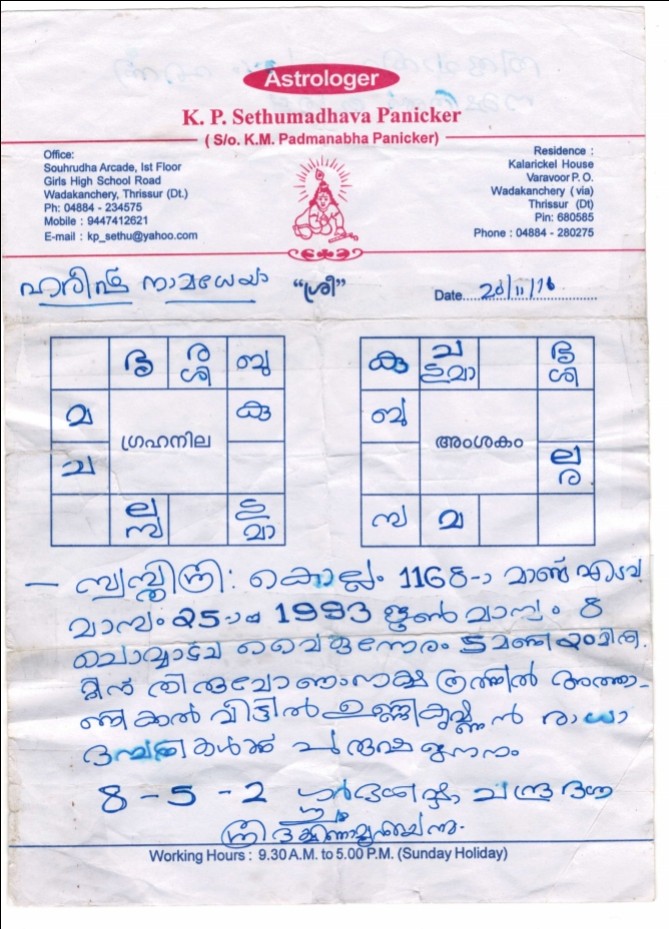 Astrologer
K. P. Sethumadhava Panicker
( S/o. K.M. Padmanabha Panicker)
Office:
Souhrudha Arcade, Ist Floor
Girls High School Road
Wadakanchery, Thrissur (Dt.)
Ph: 04884 - 234575
Mobile : 9447412621
E-mail : kp_sethu@yahoo.com
Residence :
Kalarickel House
Varavoor P. O.
Wadakanchery ( via)
Thrissur (Dt)
Pin: 680585
Phone : 04884 - 280275
ഹരീഷ് നാമധേയാ
"ശ്രീ"
Date....20/11/16
ര ബു
ശി
മ കു
ഗ്രഹനില
ച
ല
മാ
കു ച
മാ ശി
ബു
അംശകം
ല
ര
മ
കൊല്ലം 1168-ാ മാണ്ട്
മാസം 25-ാം 1993 ജൂൺ മാസം 8
ചൊവ്വാഴ്ച വൈകുന്നേരം 5 മണി 20 മിനി
തിരുവോണം നക്ഷത്രത്തിൽ അത്താ-
ണിക്കൽ വീട്ടിൽ ഉണ്ണികൃഷ്ണൻ രാധാ
ദമ്പതികൾക്ക് പുരുഷ ജനനം
8 - 5 - 2 ചന്ദ്ര ദശ
Working Hours : 9.30 A.M. to 5.00 P.M. (Sunday Holiday)